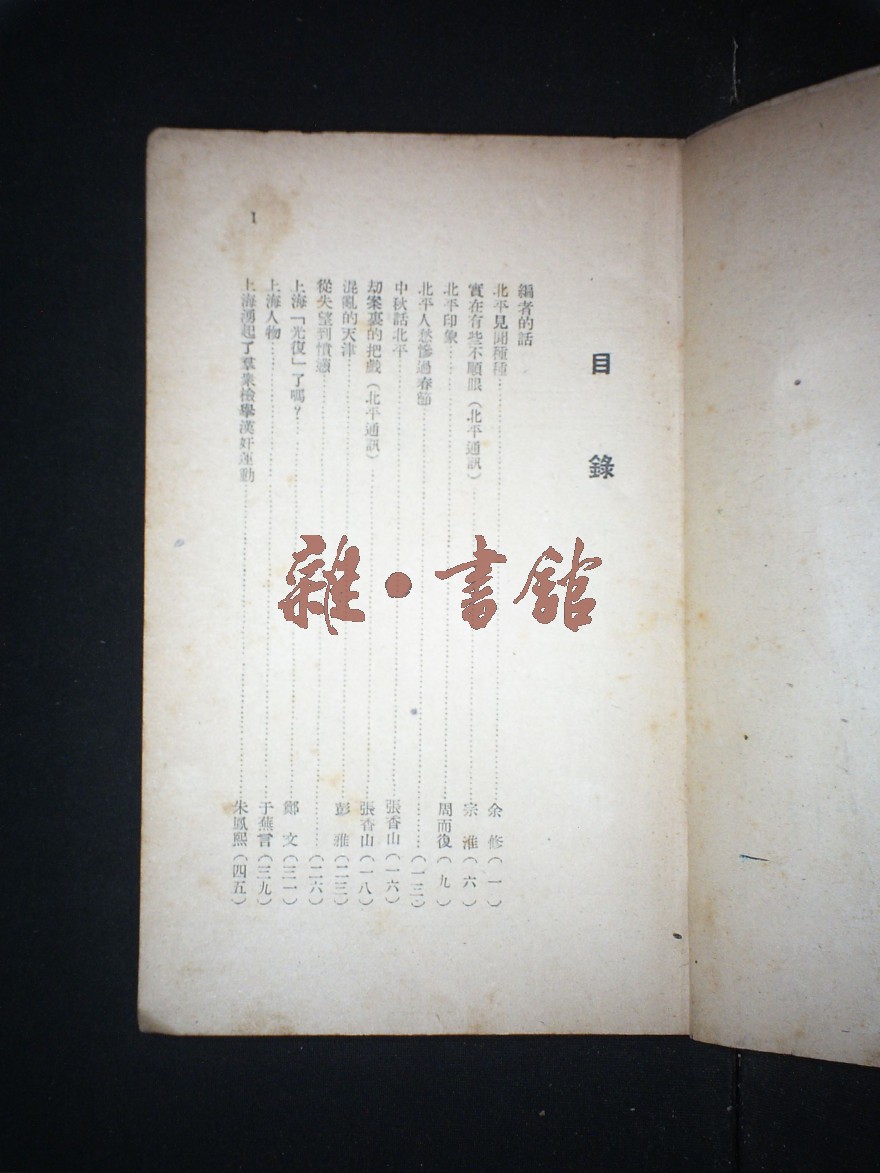 目錄
編者的話
北平見聞種種……余修(一)
實在有些不順眼(北平通訊)……宗淮(六)
北平印象……周而復(九)
北平人愁慘過春節……(一三)
中秋話北平……張香山(一六)
劫案裏的把戲(北平通訊)……張香山(一八)
混亂的天津……彭雅(二三)
從失望到憤懣……(二六)
上海「光復」了嗎?……鄭文(三一)
上海人物……于蕪言(三九)
上海湧起了羣衆檢舉漢奸運動……朱鳳熙(四五)
1
雜·書館